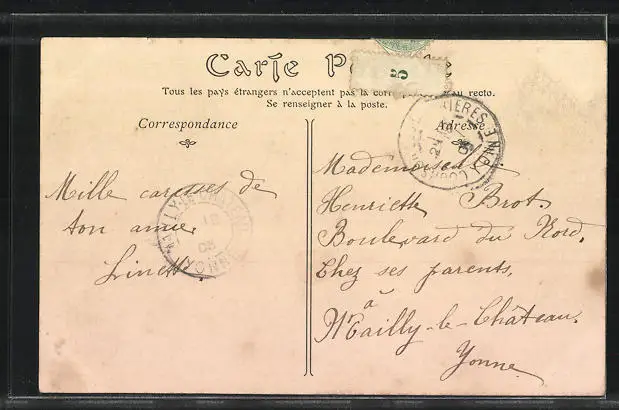 Carte Postale
5
Tous les pays étrangers n'acceptent pas la correspondance au recto.
Se renseigner à la poste.
Correspondance
Adresse
Mille caresses de
ton amie
Linette
Mademoiselle
Henriette Brot.
Boulevard du Nord.
Chez ses parents,
à
Mailly-le-Château.
Yonne.
MAILLY-LE-CHATEAU
18
05
YONNE
YONNE